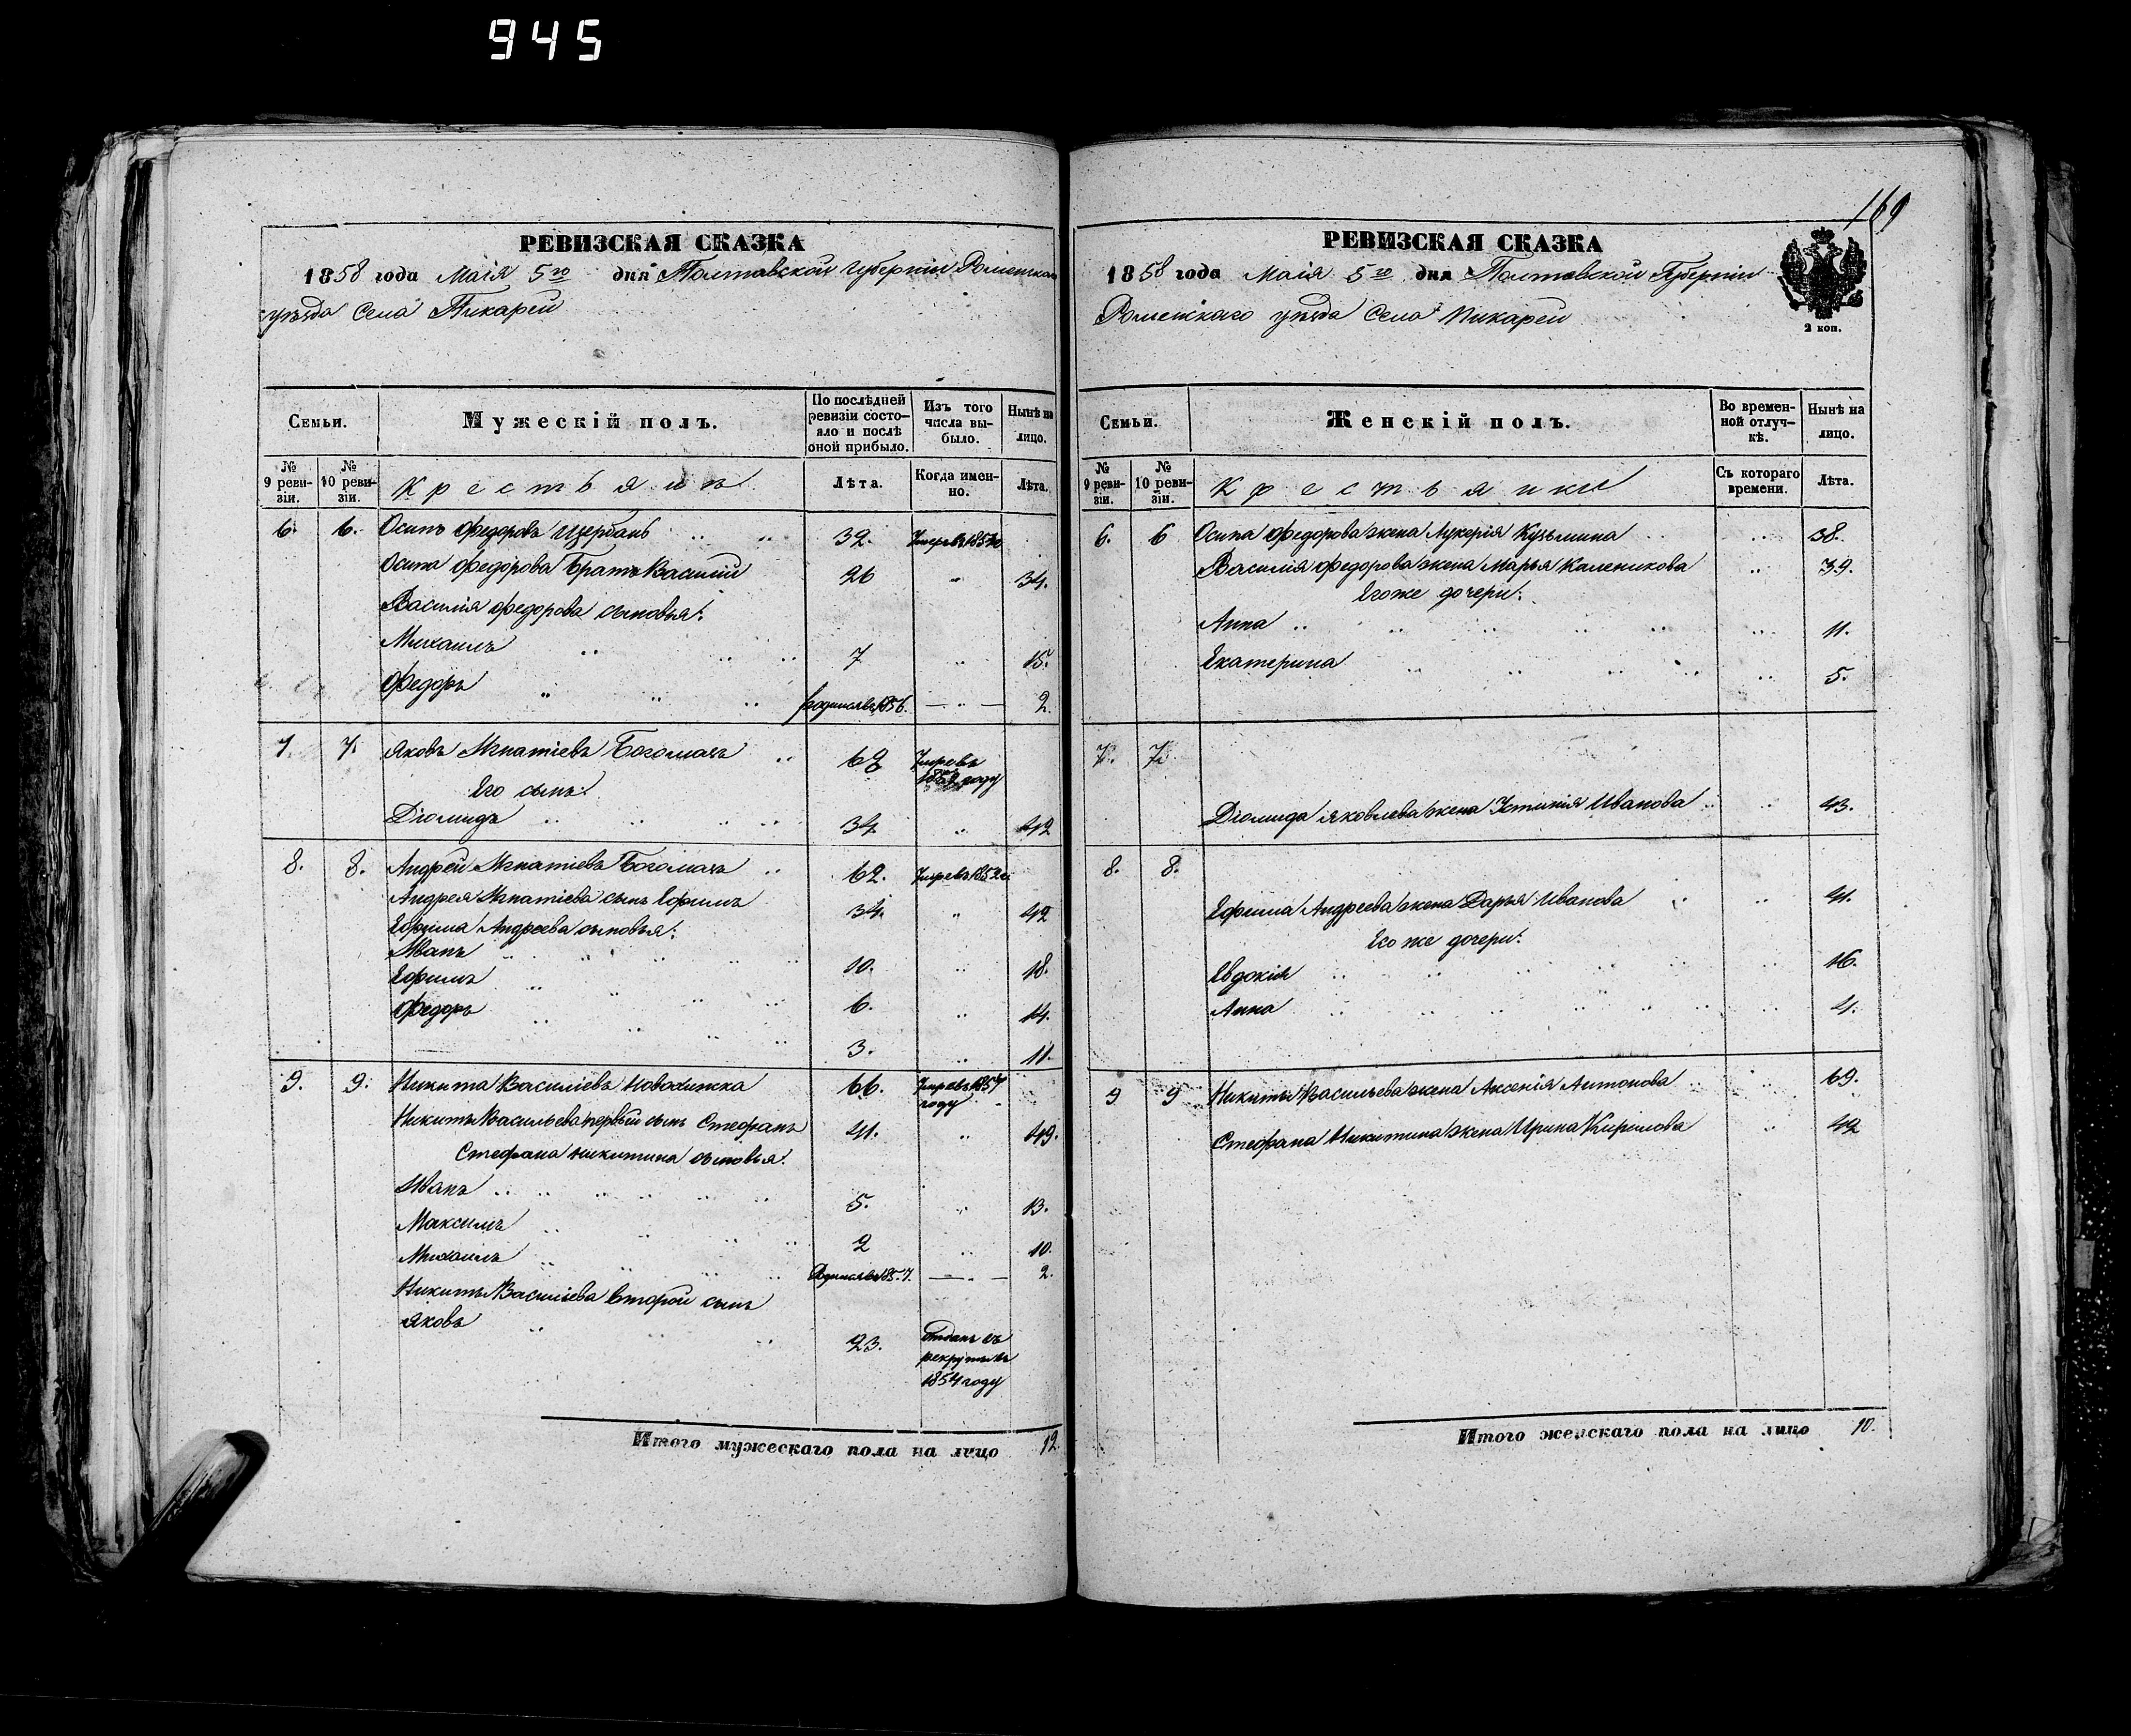 945
169
РЕВИЗСКАЯ СКАЗКА
1858 года Маія 5го дня Полтавской Губерніи Роменскаго
уѣзда Села Пикарей
Семьи.
Мужескій полъ.
По послѣдней ревизіи состояло и послѣ оной прибыло.
Изъ того числа выбыло.
Нынѣ на лицо.
№ 9 ревизіи.
№ 10 ревизіи.
Крестьянъ
Лѣта.
Когда именно.
Лѣта.
6. 6. Осипъ Федоровъ Щербань 32.
Осипа Федорова Братъ Василий 26 " 34.
Василія Федорова сыновья:
Михаилъ 7 " 15.
Федоръ родился въ 1856. — " — 2.
7. 7. Яковъ Игнатіевъ Богомазъ Умеръ въ
году
Его сынъ:
Діомидъ 34 " 42
8. 8. Андрей Игнатіевъ Богомазъ 62. Умеръ 1852
Андрея Игнатіева сынъ Ефимъ 34. " 42
Ефима Андреева сыновья:
Иванъ 10. " 18.
Ефимъ 6. " 14.
Федоръ 3. " 11.
9. 9. Никита Василіевъ 66. Умеръ 1857
году
Никиты Васильева первый сынъ Стефанъ 41. " 49.
Стефана Никитина сыновья:
Иванъ 5. " 13.
Максимъ 2 " 10.
Михаилъ — " — 2.
Никиты Василіева второй сынъ
Яковъ 23. отданъ въ
рекруты въ
1854 году
Итого мужескаго пола на лицо 12
РЕВИЗСКАЯ СКАЗКА
1858 года Маія 5го дня Полтавской Губерніи
Роменскаго уѣзда Села Пикарей
2 коп.
Семьи.
Женскій полъ.
Во временной отлучкѣ.
Нынѣ на лицо.
№ 9 ревизіи.
№ 10 ревизіи.
Крестьянки
Съ котораго времени.
Лѣта.
6. 6 Осипа Федорова жена Лукерія Кузьмина " 38.
Василія Федорова жена Марья Каленикова " 39.
Его же дочери:
Анна " 11.
Екатерина " 5.
7. 7.
Діомида Яковлева жена Устинія Иванова " 43.
8. 8.
Ефима Андреева жена Дарья Иванова " 41.
Его же дочери:
Евдокія " 16.
Анна " 4.
9 9 Никиты Васильева жена Аксенія Антонова " 69.
Стефана Никитина жена Ирина Кирилова " 42
Итого женскаго пола на лицо 10.